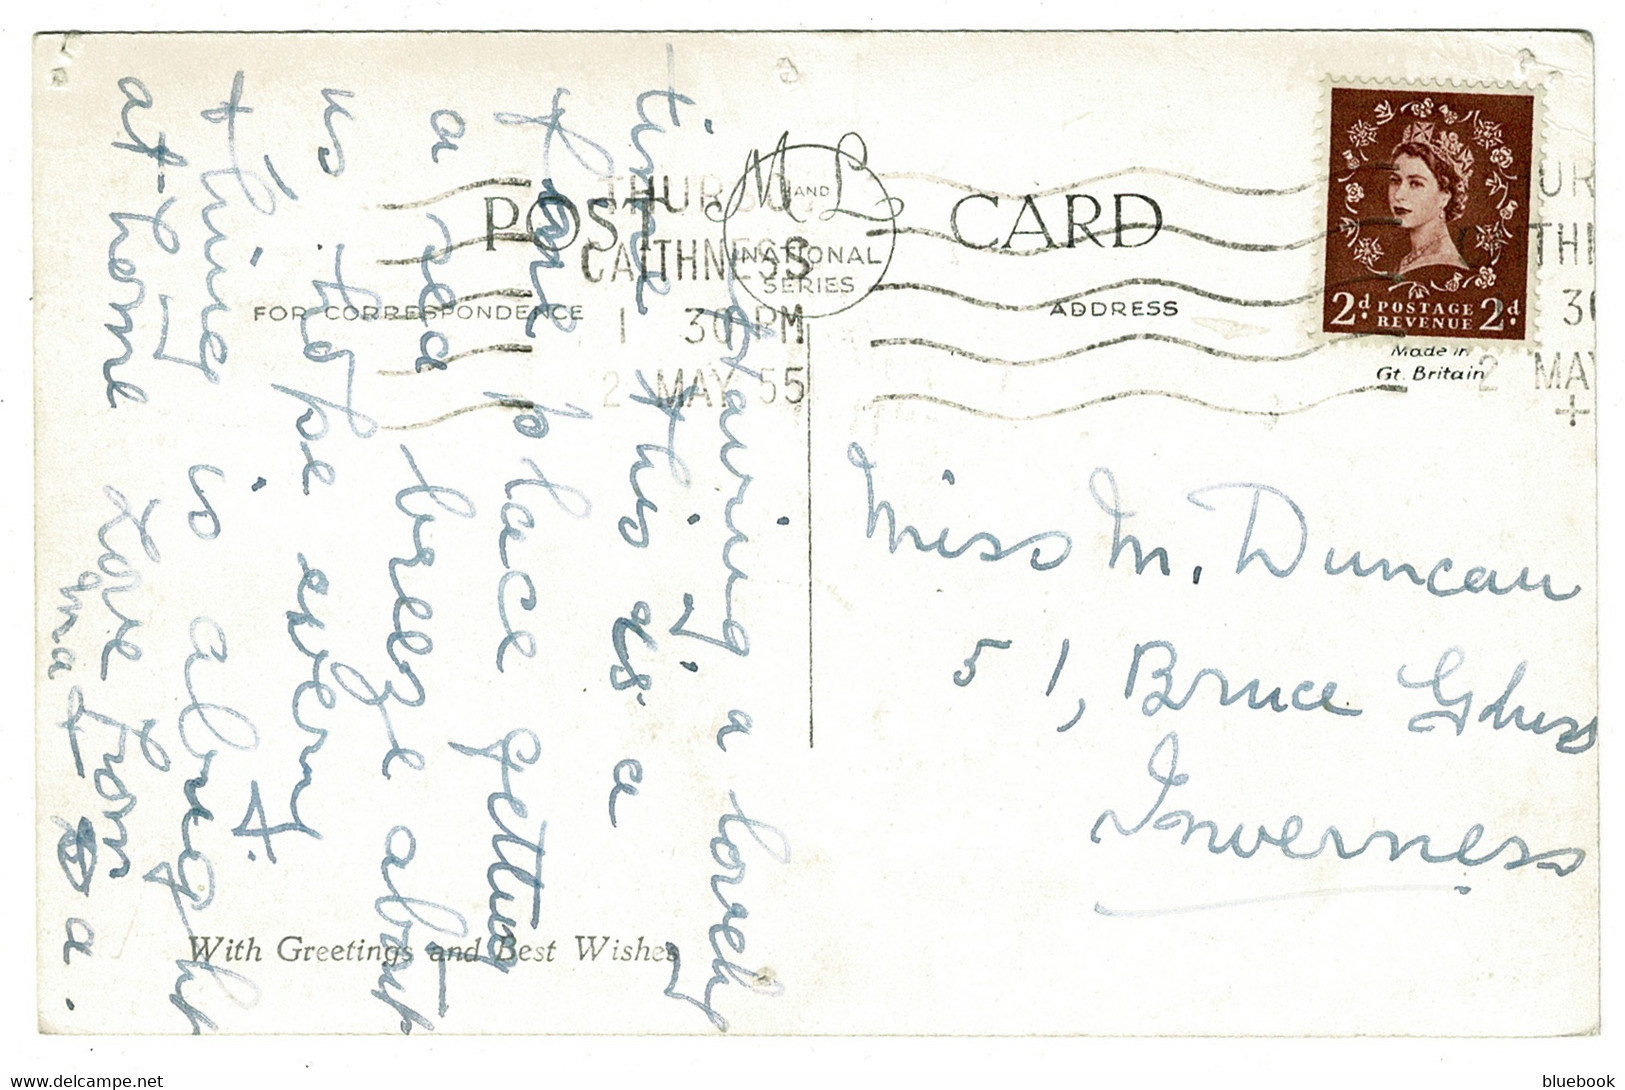 POST CARD
M AND L
NATIONAL
SERIES
FOR CORRESPONDENCE
ADDRESS
THURSO
CAITHNESS
1 30 PM
2 MAY 55
2d POSTAGE REVENUE 2d
Made in
Gt. Britain
2 MAY
Having a lovely
time this is a
fine place getting
a sea breeze about
us. Hope every
thing is alright
at home
Love from
Gma & Ga.
With Greetings and Best Wishes
Miss M. Duncan
51, Bruce Gdns
Inverness
bluebook